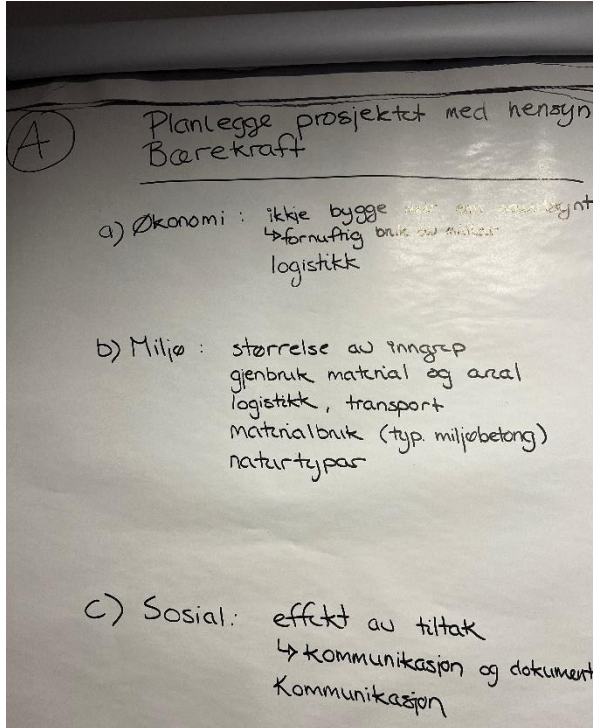 A
Planlegge prosjektet med hensyn
Bærekraft
a) Økonomi : ikkje bygge
↳ fornuftig bruk av
logistikk
b) Miljø : størrelse av inngrep
gjenbruk material og areal
logistikk, transport
materialbruk (typ. miljøbetong)
naturtypar
c) Sosial : effekt av tiltak
↳ kommunikasjon og dokument
Kommunikasjon